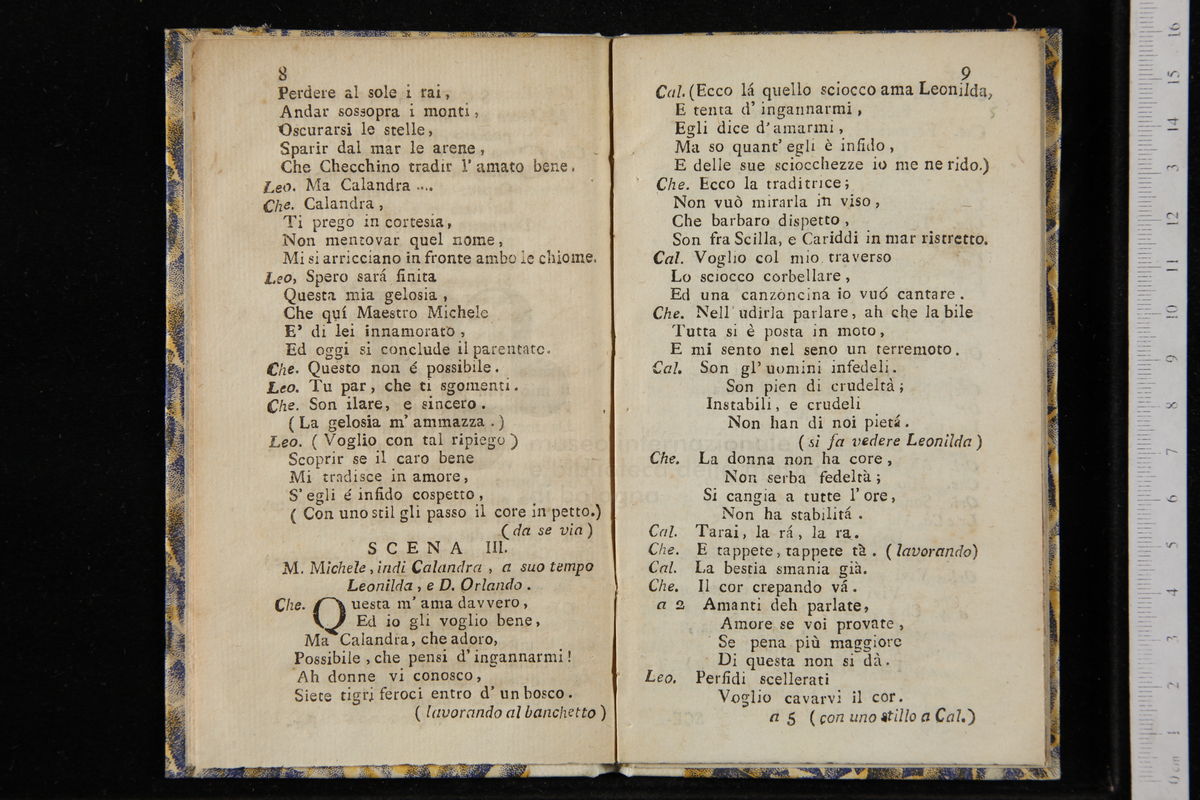 8
Perdere al sole i rai,
Andar sossopra i monti,
Oscurarsi le stelle,
Sparir dal mar le arene,
Che Checchino tradir l' amato bene.
Leo. Ma Calandra ....
Che. Calandra,
Ti prego in cortesia,
Non mentovar quel nome,
Mi si arricciano in fronte ambo le chiome.
Leo, Spero sará finita
Questa mia gelosia,
Che quí Maestro Michele
E' di lei innamorato,
Ed oggi si conclude il parentato.
Che. Questo non é possibile.
Leo. Tu par, che ti sgomenti.
Che. Son ilare, e sincero.
(La gelosia m' ammazza.)
Leo. (Voglio con tal ripiego)
Scoprir se il caro bene
Mi tradisce in amore,
S' egli é infido cospetto,
(Con uno stil gli passo il core in petto.)
(da se via)
SCENA III.
M. Michele, indi Calandra, a suo tempo
Leonilda, e D. Orlando.
Che. Questa m' ama davvero,
Ed io gli voglio bene,
Ma Calandra, che adoro,
Possibile, che pensi d' ingannarmi!
Ah donne vi conosco,
Siete tigri feroci entro d' un bosco.
(lavorando al banchetto)
9
Cal. (Ecco lá quello sciocco ama Leonilda,
E tenta d' ingannarmi,
Egli dice d' amarmi,
Ma so quant' egli è infido,
E delle sue sciocchezze io me ne rido.)
Che. Ecco la traditrice;
Non vuò mirarla in viso,
Che barbaro dispetto,
Son fra Scilla, e Cariddi in mar ristretto.
Cal. Voglio col mio traverso
Lo sciocco corbellare,
Ed una canzoncina io vuó cantare.
Che. Nell' udirla parlare, ah che la bile
Tutta si è posta in moto,
E mi sento nel seno un terremoto.
Cal. Son gl' uomini infedeli.
Son pien di crudeltà;
Instabili, e crudeli
Non han di noi pietá.
(si fa vedere Leonilda)
Che. La donna non ha core,
Non serba fedeltà;
Si cangia a tutte l' ore,
Non ha stabilitá.
Cal. Tarai, la rá, la ra.
Che. E tappete, tappete tà. (lavorando)
Cal. La bestia smania già.
Che. Il cor crepando vá.
a 2 Amanti deh parlate,
Amore se voi provate,
Se pena più maggiore
Di questa non si dà.
Leo. Perfidi scellerati
Voglio cavarvi il cor.
a 5 (con uno stillo a Cal.)
museo internazionale
e biblioteca della
di bologna
0 cm 1 2 3 4 5 6 7 8 9 10 11 12 13 14 15 16